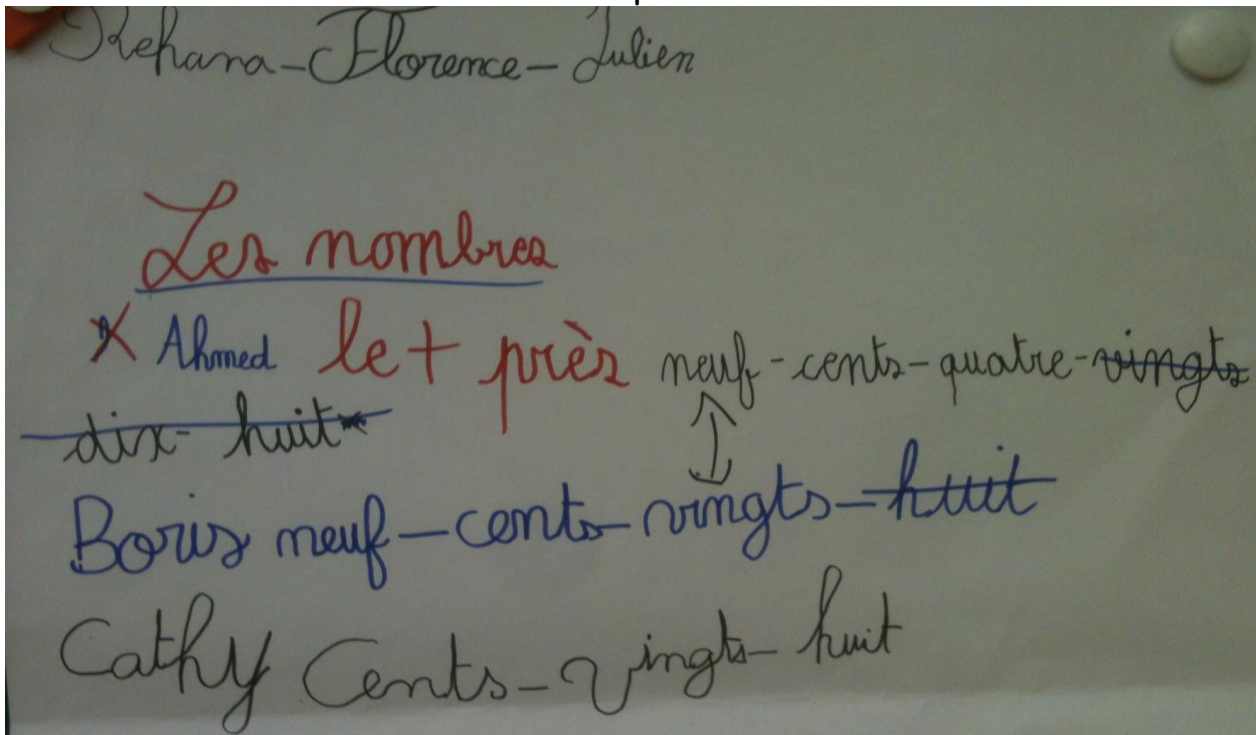 Rehana-Florence-Julien
Les nombres
x Ahmed le + près neuf-cents-quatre-vingts
dix-huit
Boris neuf-cents-vingts-huit
Cathy Cents-vingts-huit